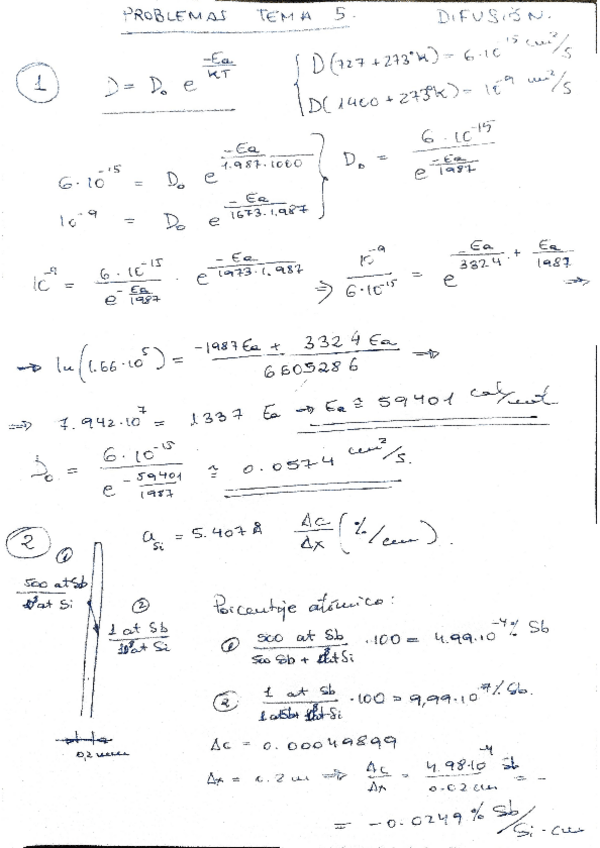 PROBLEMAS TEMA 5. DIFUSIÓN.
① D = D₀ e^(-Ea/KT) { D(727+273°K) = 6·10^-15 cm²/s
D(1400+273°K) = 10^-9 cm²/s
6·10^-15 = D₀ e^(-Ea/1.987·1000) } D₀ = 6·10^-15 / e^(-Ea/1987)
10^-9 = D₀ e^(-Ea/1673·1.987)
10^-9 = 6·10^-15 / e^(-Ea/1987) · e^(-Ea/1973·1.987) ⇒ 10^-9 / 6·10^-15 = e^(-Ea/3324 + Ea/1987) ⇒
⇒ ln(1.66·10^5) = -1987Ea + 3324Ea / 6605286 ⇒
⇒ 7.942·10^7 = 1337 Ea → Ea ≅ 59401 cal/mol
D₀ = 6·10^-15 / e^(-59401/1987) ≅ 0.0574 cm²/s.
② a_Si = 5.407Å Δc/Δx (%/cm).
① 500 at Sb / at Si
② 1 at Sb / at Si
Porcentaje atómico:
① 500 at Sb / 500 Sb + at Si · 100 = 4.99·10^-4 % Sb
② 1 at Sb / 1 at Sb + at Si · 100 = 9,99·10^-7 % Sb.
0,2 mm
Δc = 0.00049899
Δx = 0.2 m ⇒ Δc/Δx = 4.98·10^-4 Sb / 0.02 cm = -
= -0.0249 % Sb / Si·cm